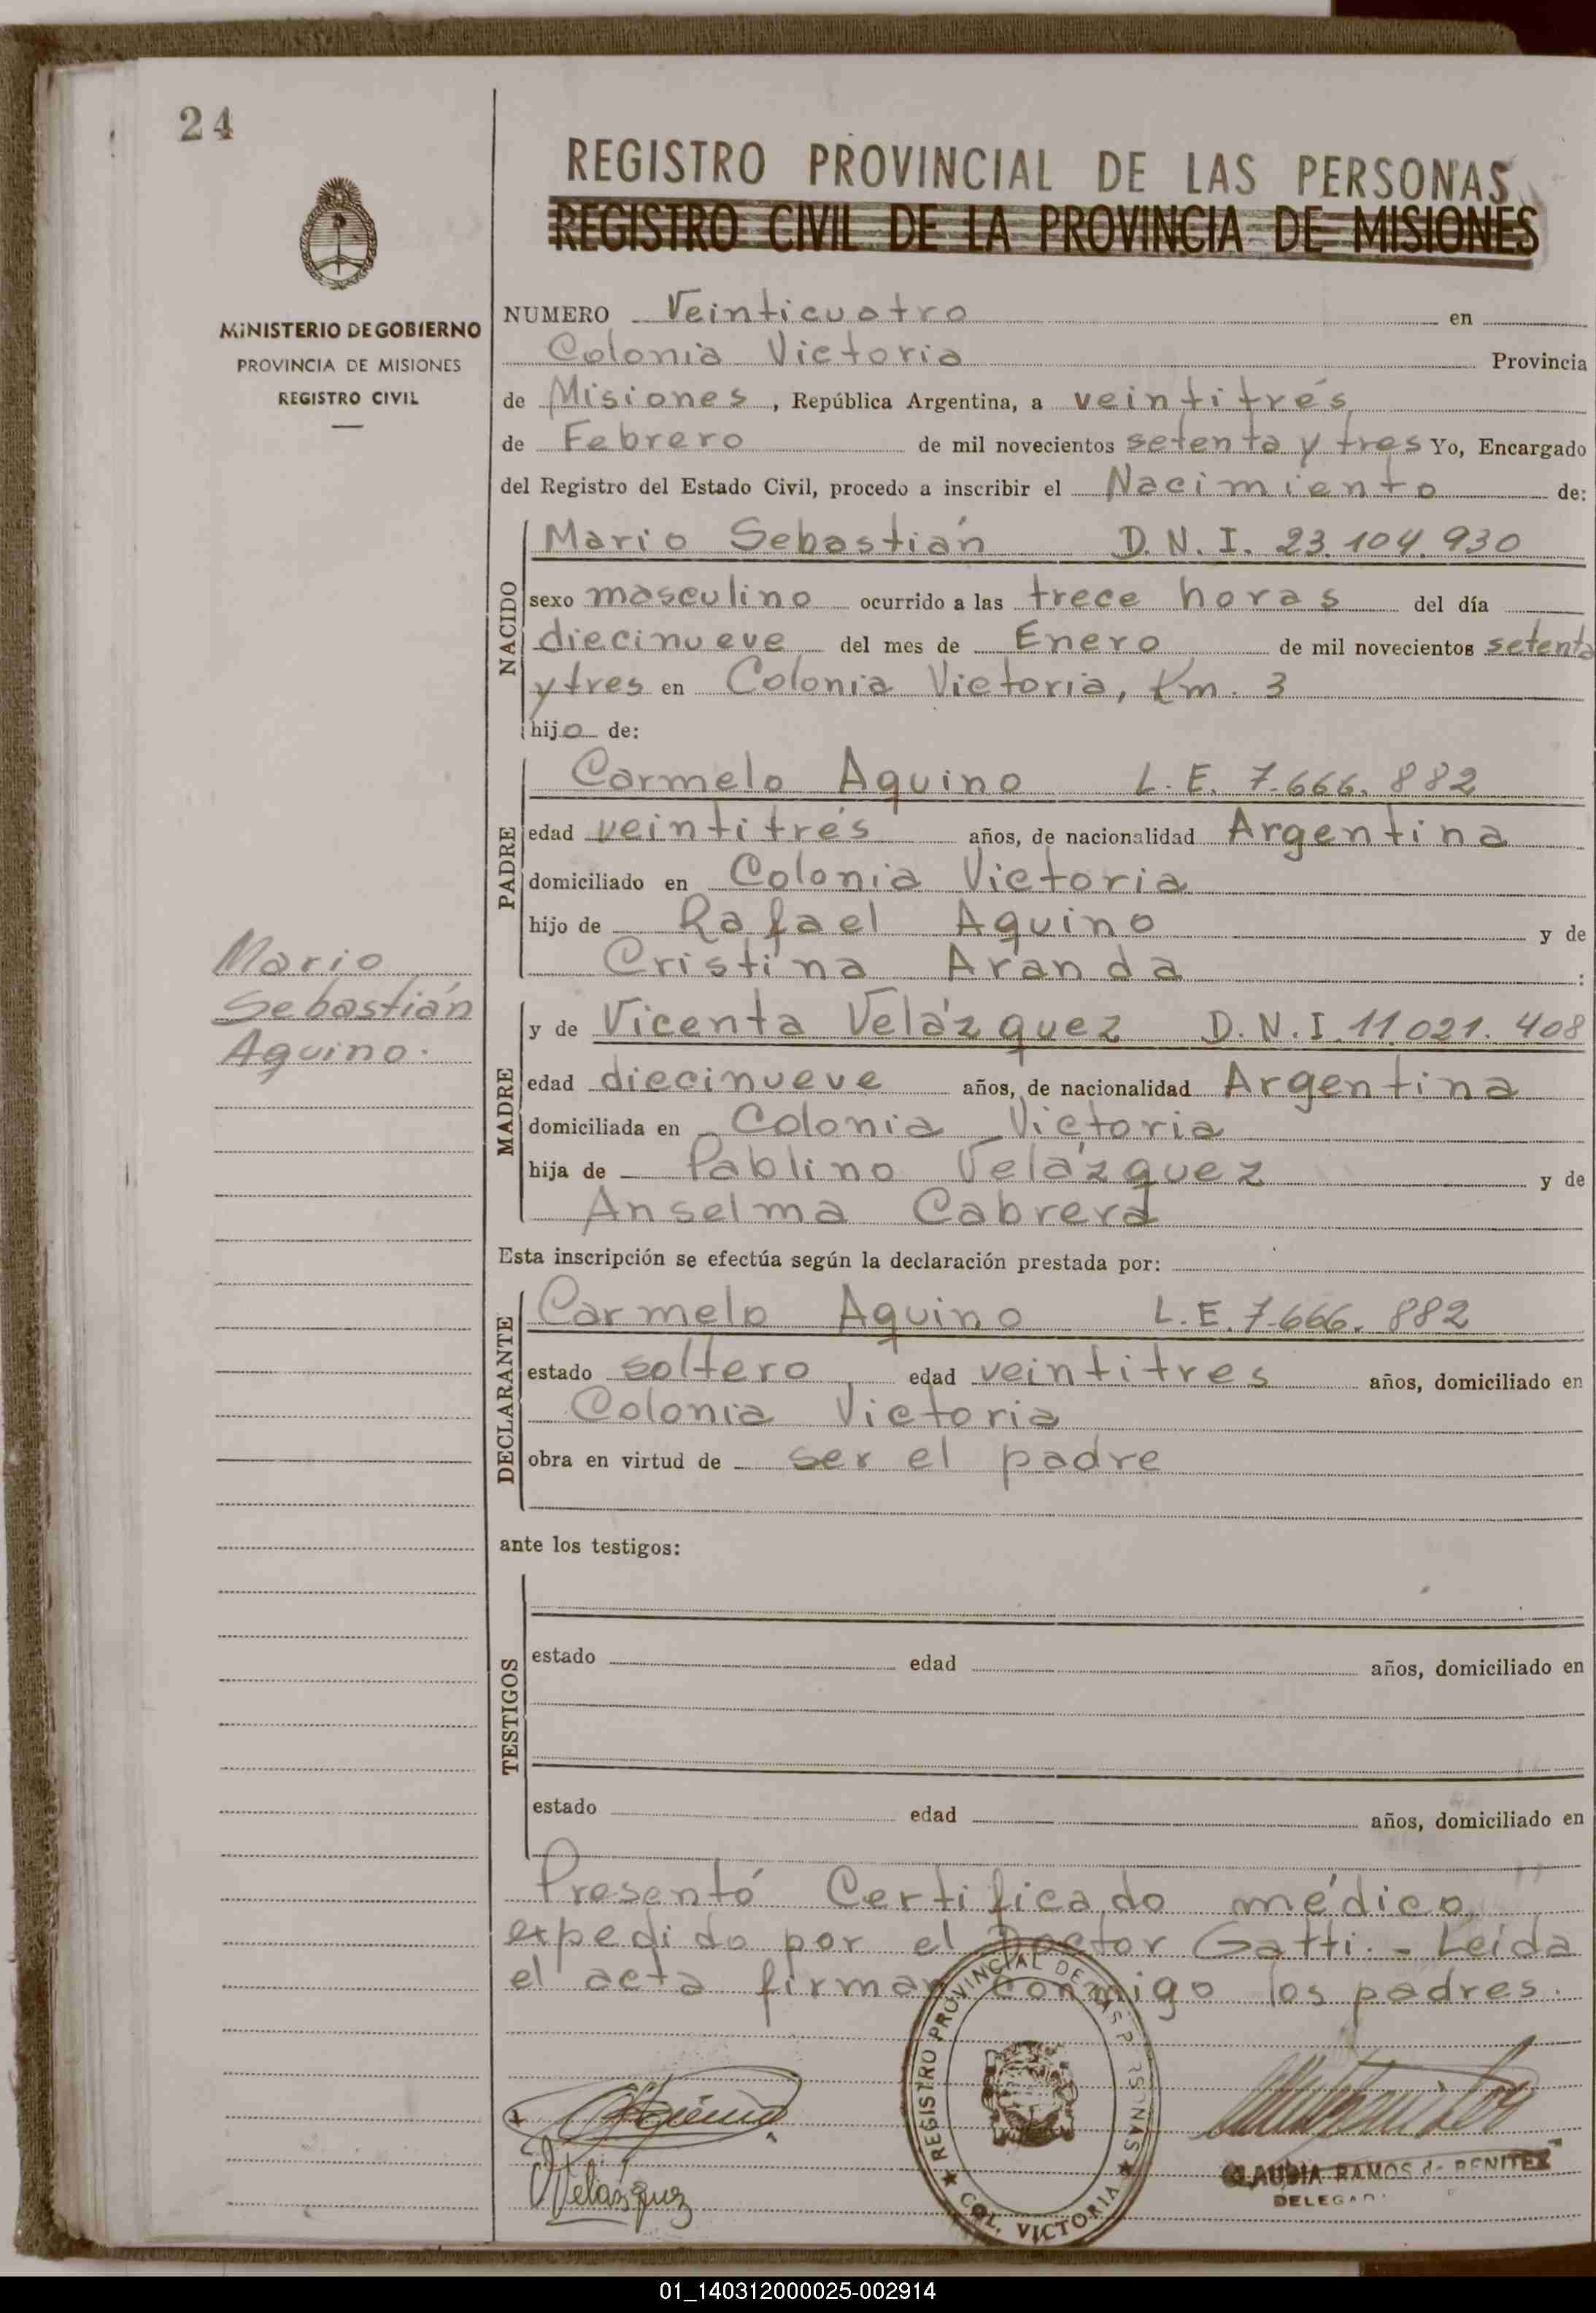 24
MINISTERIO DE GOBIERNO
PROVINCIA DE MISIONES
REGISTRO CIVIL
REGISTRO PROVINCIAL DE LAS PERSONAS
REGISTRO CIVIL DE LA PROVINCIA DE MISIONES
NUMERO Veinticuatro en
Colonia Victoria Provincia
de Misiones, República Argentina, a veintitrés
de Febrero de mil novecientos setenta y tres Yo, Encargado
del Registro del Estado Civil, procedo a inscribir el Nacimiento de:
NACIDO
Mario Sebastián D.N.I. 23.104.930
sexo masculino ocurrido a las trece horas del día
diecinueve del mes de Enero de mil novecientos setenta
y tres en Colonia Victoria, Km. 3
hijo de:
PADRE
Carmelo Aquino L.E. 7.666.882
edad veintitrés años, de nacionalidad Argentina
domiciliado en Colonia Victoria
hijo de Rafael Aquino y de
Cristina Aranda :
Mario
Sebastián
Aquino.
MADRE
y de Vicenta Velázquez D.N.I. 11.021.408
edad diecinueve años, de nacionalidad Argentina
domiciliada en Colonia Victoria
hija de Pablino Velázquez y de
Anselma Cabrera
Esta inscripción se efectúa según la declaración prestada por:
DECLARANTE
Carmelo Aquino L.E. 7.666.882
estado soltero edad veintitres años, domiciliado en
Colonia Victoria
obra en virtud de ser el padre
ante los testigos:
TESTIGOS
estado edad años, domiciliado en
estado edad años, domiciliado en
Presentó Certificado médico
expedido por el Doctor Gatti.- Leída
el acta firman conmigo los padres.
REGISTRO PROVINCIAL DE LAS PERSONAS
COL. VICTORIA
VVelázquez
CLAUDIA RAMOS de BENITEZ
01_140312000025-002914